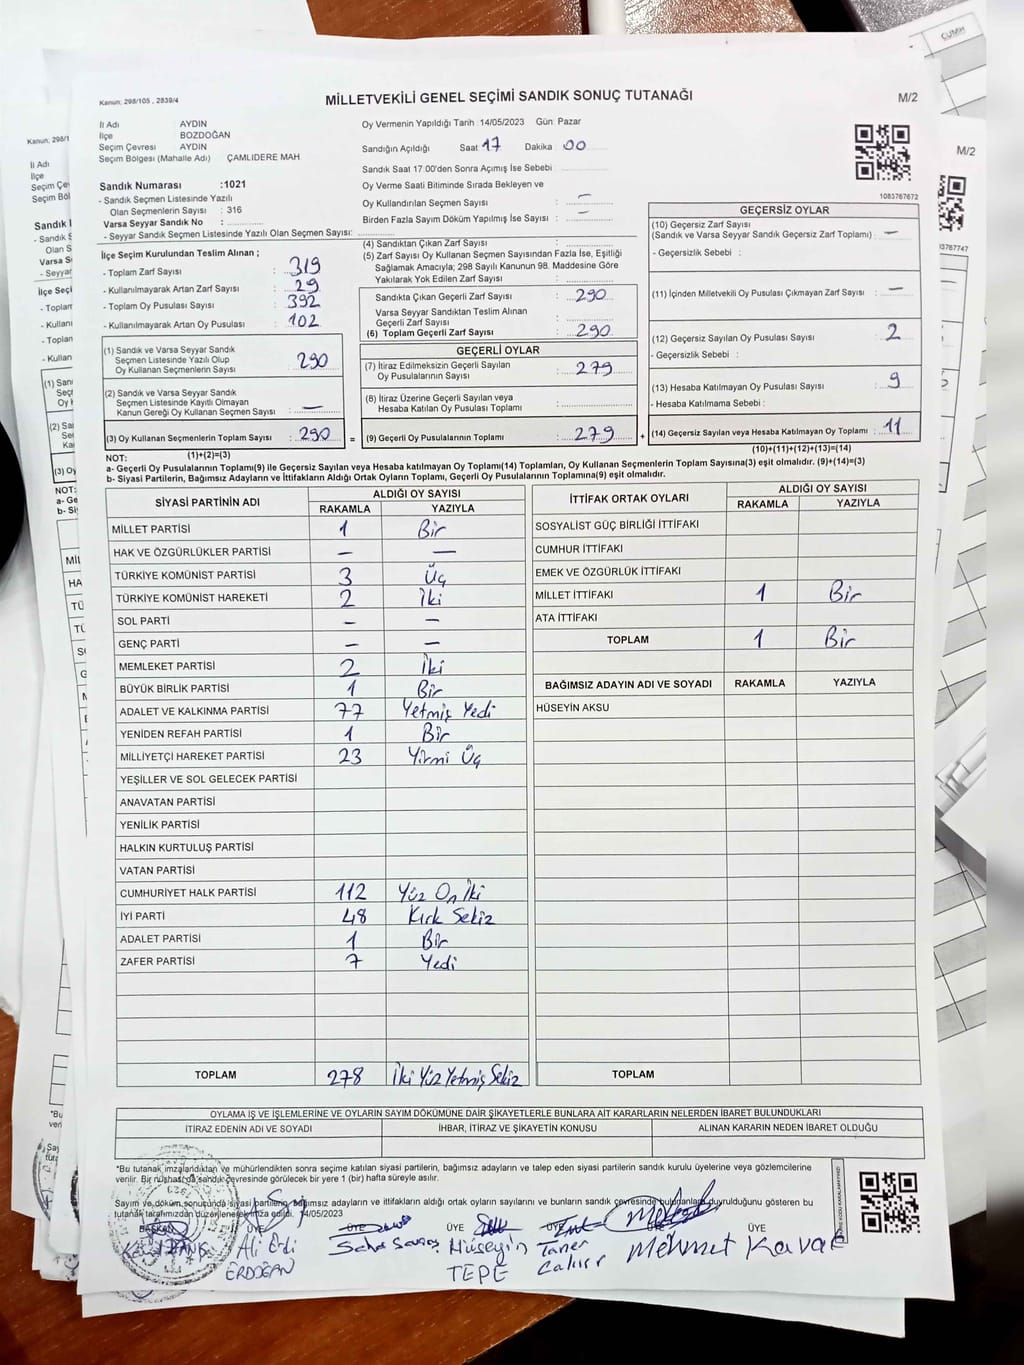 Kanun: 298/105 , 2839/4
MİLLETVEKİLİ GENEL SEÇİMİ SANDIK SONUÇ TUTANAĞI
M/2
İl Adı AYDIN
İlçe BOZDOĞAN
Seçim Çevresi AYDIN
Seçim Bölgesi (Mahalle Adı) ÇAMLIDERE MAH
Sandık Numarası :1021
- Sandık Seçmen Listesinde Yazılı
Olan Seçmenlerin Sayısı : 316
Varsa Seyyar Sandık No :
- Seyyar Sandık Seçmen Listesinde Yazılı Olan Seçmen Sayısı:
Oy Vermenin Yapıldığı Tarih :14/05/2023 Gün: Pazar
Sandığın Açıldığı Saat :17 Dakika :00
Sandık Saat 17:00'den Sonra Açımış İse Sebebi :
Oy Verme Saati Bitiminde Sırada Bekleyen ve
Oy Kullandırılan Seçmen Sayısı : —
Birden Fazla Sayım Döküm Yapılmış İse Sayısı : —
1083767672
İlçe Seçim Kurulundan Teslim Alınan ;
- Toplam Zarf Sayısı : 319
- Kullanılmayarak Artan Zarf Sayısı : 29
- Toplam Oy Pusulası Sayısı : 392
- Kullanılmayarak Artan Oy Pusulası : 102
(1) Sandık ve Varsa Seyyar Sandık
Seçmen Listesinde Yazılı Olup
Oy Kullanan Seçmenlerin Sayısı : 290
(2) Sandık ve Varsa Seyyar Sandık
Seçmen Listesinde Kayıtlı Olmayan
Kanun Gereği Oy Kullanan Seçmen Sayısı : —
(3) Oy Kullanan Seçmenlerin Toplam Sayısı : 290
(1)+(2)=(3)
(4) Sandıktan Çıkan Zarf Sayısı :
(5) Zarf Sayısı Oy Kullanan Seçmen Sayısından Fazla İse, Eşitliği
Sağlamak Amacıyla; 298 Sayılı Kanunun 98. Maddesine Göre
Yakılarak Yok Edilen Zarf Sayısı :
Sandıkta Çıkan Geçerli Zarf Sayısı : 290
Varsa Seyyar Sandıktan Teslim Alınan
Geçerli Zarf Sayısı :
(6) Toplam Geçerli Zarf Sayısı : 290
GEÇERLİ OYLAR
(7) İtiraz Edilmeksizin Geçerli Sayılan
Oy Pusulalarının Sayısı : 279
(8) İtiraz Üzerine Geçerli Sayılan veya
Hesaba Katılan Oy Pusulası Toplamı :
= (9) Geçerli Oy Pusulalarının Toplamı : 279
GEÇERSİZ OYLAR
(10) Geçersiz Zarf Sayısı
(Sandık ve Varsa Seyyar Sandık Geçersiz Zarf Toplamı) : —
- Geçersizlik Sebebi :
(11) İçinden Milletvekili Oy Pusulası Çıkmayan Zarf Sayısı : —
(12) Geçersiz Sayılan Oy Pusulası Sayısı : 2
- Geçersizlik Sebebi :
(13) Hesaba Katılmayan Oy Pusulası Sayısı : 9
- Hesaba Katılmama Sebebi :
+ (14) Geçersiz Sayılan veya Hesaba Katılmayan Oy Toplamı : 11
(10)+(11)+(12)+(13)=(14)
NOT:
a- Geçerli Oy Pusulalarının Toplamı(9) ile Geçersiz Sayılan veya Hesaba katılmayan Oy Toplamı(14) Toplamları, Oy Kullanan Seçmenlerin Toplam Sayısına(3) eşit olmalıdır. (9)+(14)=(3)
b- Siyasi Partilerin, Bağımsız Adayların ve İttifakların Aldığı Ortak Oyların Toplamı, Geçerli Oy Pusulalarının Toplamına(9) eşit olmalıdır.
SİYASİ PARTİNİN ADI ALDIĞI OY SAYISI
RAKAMLA YAZIYLA
MİLLET PARTİSİ 1 Bir
HAK VE ÖZGÜRLÜKLER PARTİSİ — —
TÜRKİYE KOMÜNİST PARTİSİ 3 Üç
TÜRKİYE KOMÜNİST HAREKETİ 2 İki
SOL PARTİ — —
GENÇ PARTİ — —
MEMLEKET PARTİSİ 2 İki
BÜYÜK BİRLİK PARTİSİ 1 Bir
ADALET VE KALKINMA PARTİSİ 77 Yetmiş Yedi
YENİDEN REFAH PARTİSİ 1 Bir
MİLLİYETÇİ HAREKET PARTİSİ 23 Yirmi Üç
YEŞİLLER VE SOL GELECEK PARTİSİ
ANAVATAN PARTİSİ
YENİLİK PARTİSİ
HALKIN KURTULUŞ PARTİSİ
VATAN PARTİSİ
CUMHURİYET HALK PARTİSİ 112 Yüz On İki
İYİ PARTİ 48 Kırk Sekiz
ADALET PARTİSİ 1 Bir
ZAFER PARTİSİ 7 Yedi
TOPLAM 278 İki Yüz Yetmiş Sekiz
İTTİFAK ORTAK OYLARI ALDIĞI OY SAYISI
RAKAMLA YAZIYLA
SOSYALİST GÜÇ BİRLİĞİ İTTİFAKI
CUMHUR İTTİFAKI
EMEK VE ÖZGÜRLÜK İTTİFAKI
MİLLET İTTİFAKI 1 Bir
ATA İTTİFAKI
TOPLAM 1 Bir
BAĞIMSIZ ADAYIN ADI VE SOYADI RAKAMLA YAZIYLA
HÜSEYİN AKSU
TOPLAM
OYLAMA İŞ VE İŞLEMLERİNE VE OYLARIN SAYIM DÖKÜMÜNE DAİR ŞİKAYETLERLE BUNLARA AİT KARARLARIN NELERDEN İBARET BULUNDUKLARI
İTİRAZ EDENİN ADI VE SOYADI İHBAR, İTİRAZ VE ŞİKAYETİN KONUSU ALINAN KARARIN NEDEN İBARET OLDUĞU
*Bu tutanak imzalandıktan ve mühürlendikten sonra seçime katılan siyasi partilerin, bağımsız adayların ve talep eden siyasi partilerin sandık kurulu üyelerine veya gözlemcilerine
verilir. Bir nüshası da sandık çevresinde görülecek bir yere 1 (bir) hafta süreyle asılır.
Sayım ve döküm sonucunda siyasi partilerin, bağımsız adayların ve ittifakların aldığı ortak oyların sayılarını ve bunların sandık çevresinde bulunanlara duyrulduğunu gösteren bu
tutanak tarafımızdan düzenlenerek imza edildi. 14/05/2023
BAŞKAN ÜYE ÜYE ÜYE ÜYE ÜYE
Ali Erdi Hüseyin Taner Mehmet Kavak
ERDOĞAN TEPE